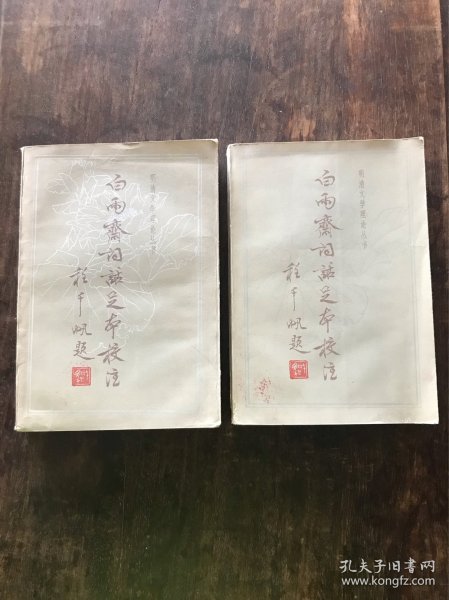 明清文学理论丛书
白雨斋词话足本校注
程千帆题
明清文学理论丛书
白雨斋词话足本校注
程千帆题
孔夫子旧书网
www.kongfz.com